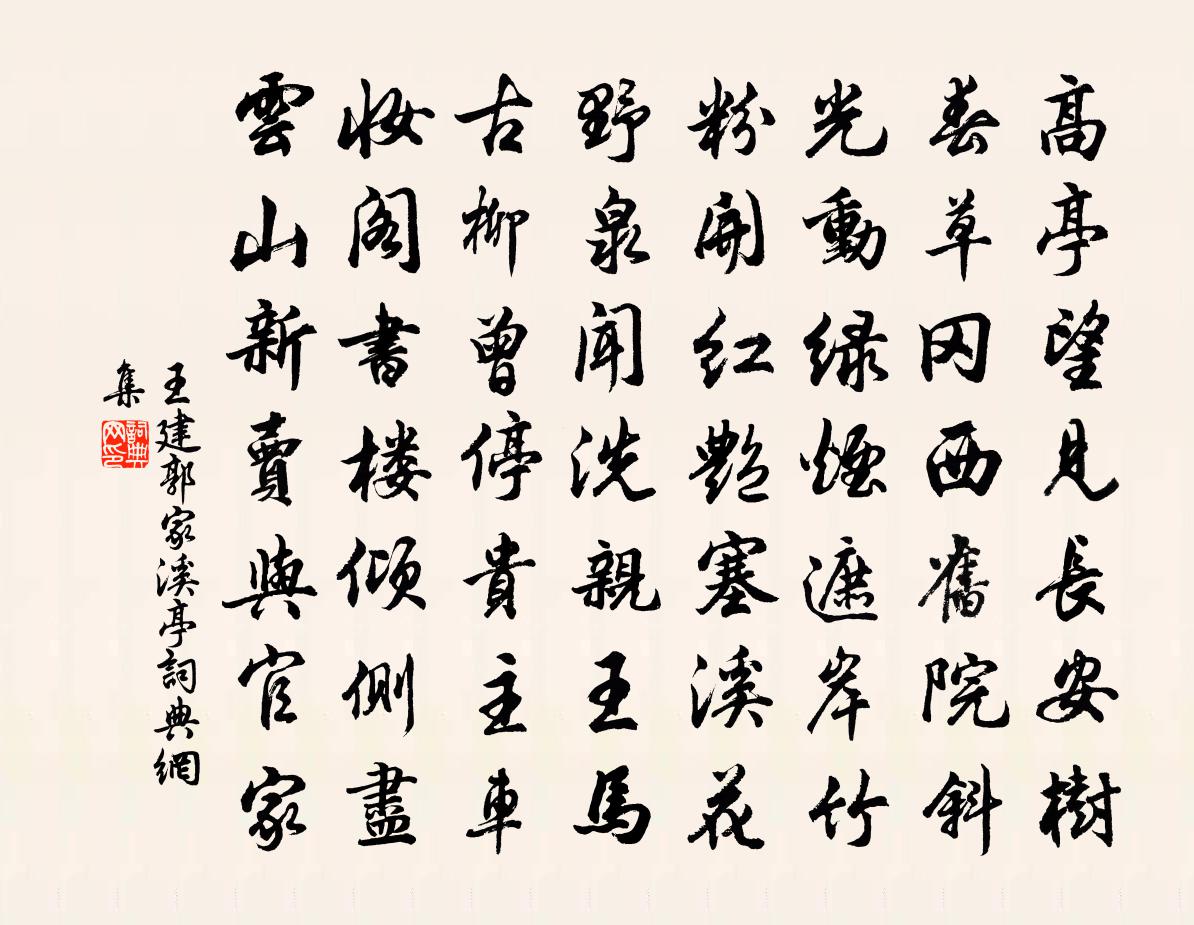 高亭望見長安樹
春草冈西舊院斜
光動绿煙遮岸竹
粉開红艷塞溪花
野泉聞洗親王馬
古柳曾停貴主車
妝阁書楼倾側盡
雲山新賣與官家
王建郭家溪亭詞典網
集
詞典
网印